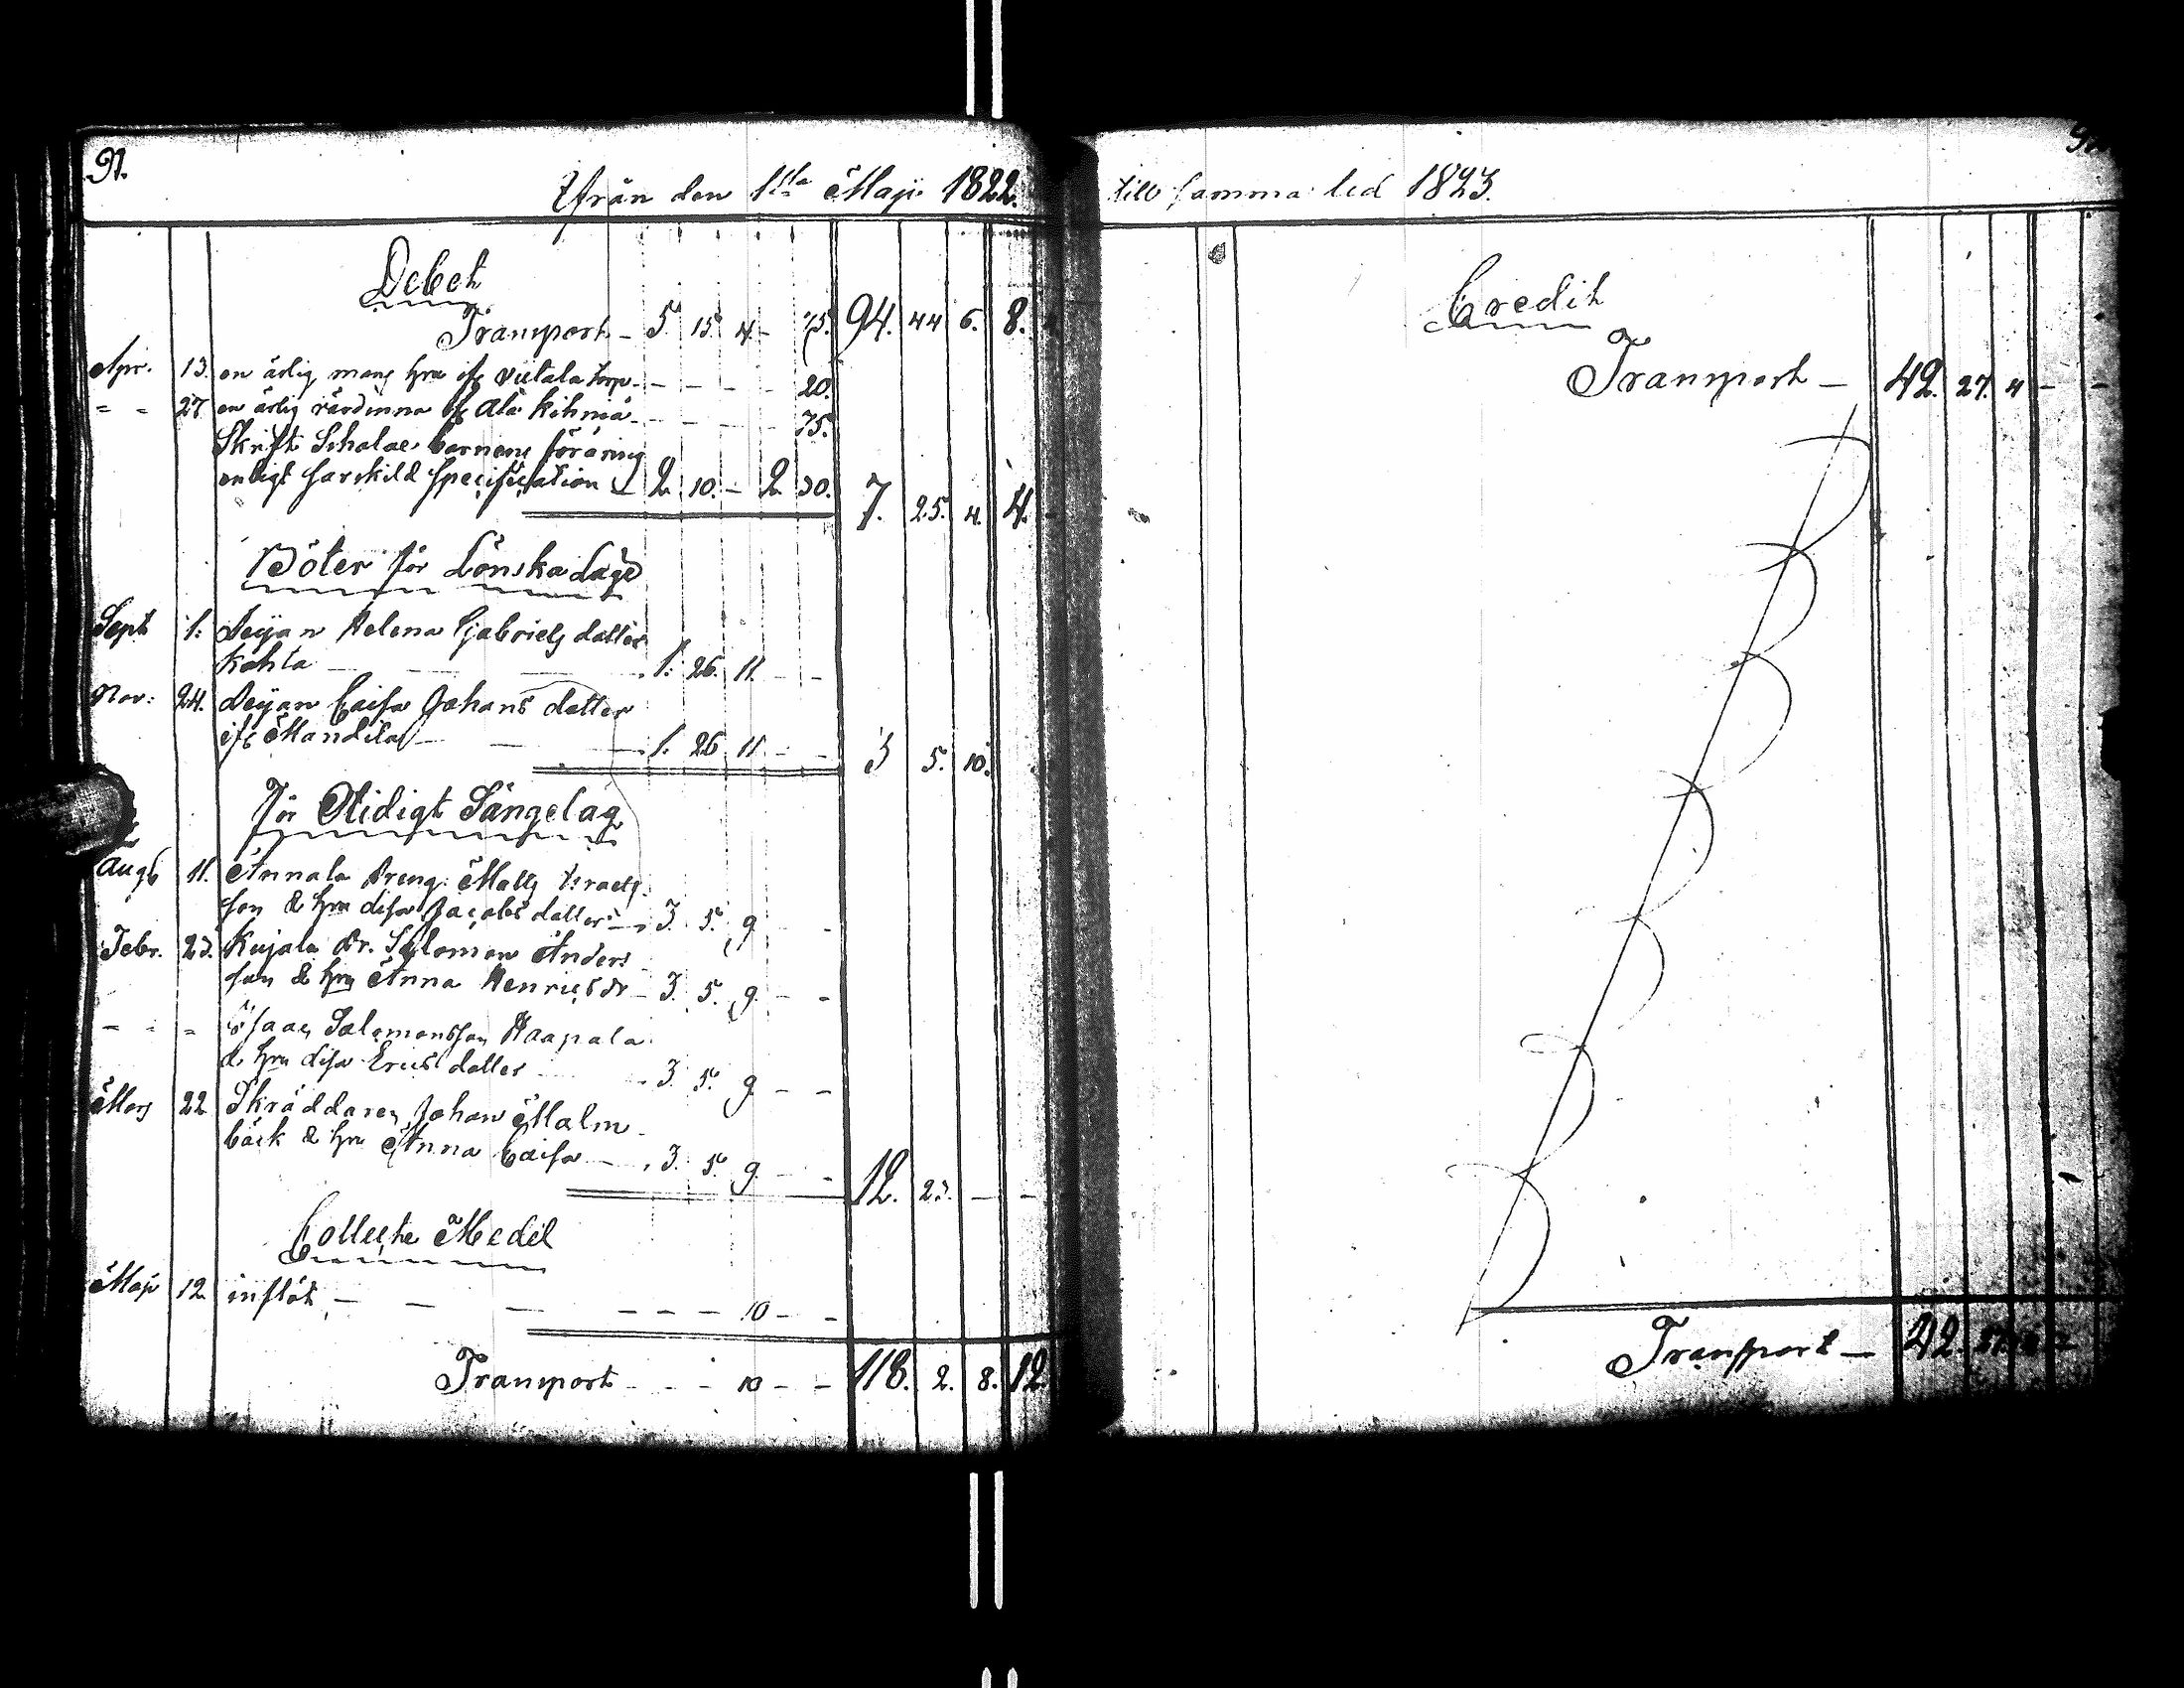 91.
Ifrån den 1sta Maji 1822.
Debet
Transport - 5. 15. 4 - 75. 94. 44 6. 8.
Apr. 13. en ärlig mans hru ifr torp - - - - 20.
= = 27 en ärlig värdinna ifr Ala Kihniä - - - 75.
Skrift Scholae barnens föräring
enligt särskild specification - 2 10. - 2 30. 7. 25. 4. 4.
Böter för Lönska Läge
Sept 1. Deijan Helena Gabriels dotter
Kohta - 1. 26. 11. - -
Nov: 24. Deijan Caisa Johans dotter
ifr Mandila - 1. 26 11 - - 3 5. 10.
För Otidigt Sängelag
Aug 11. Annala Dreng Matts Israels
son & hru Lisa Jacobs dotter - 3. 5. 9 - -
Febr. 23. Kujala Dr. Salomon Anders
son & hru Anna Henricsdr - 3. 5. 9. - -
- - = Isaac Salomonsson Haapala
& hru Lisa Erics dotter - 3. 5. 9 - -
Mars 22 Skräddaren Johan Malm
bäck & hru Anna Caisa - 3. 5. 9. - - 12. 23. - -
Collecte Medel
Maji 12 inflöt - - - - - - 10 - -
Transport - - - 10 - - 118. 2. 8. 12
till samma tid 1823.
Credit
Transport - 42. 27. 4 - -
Transport - 42.